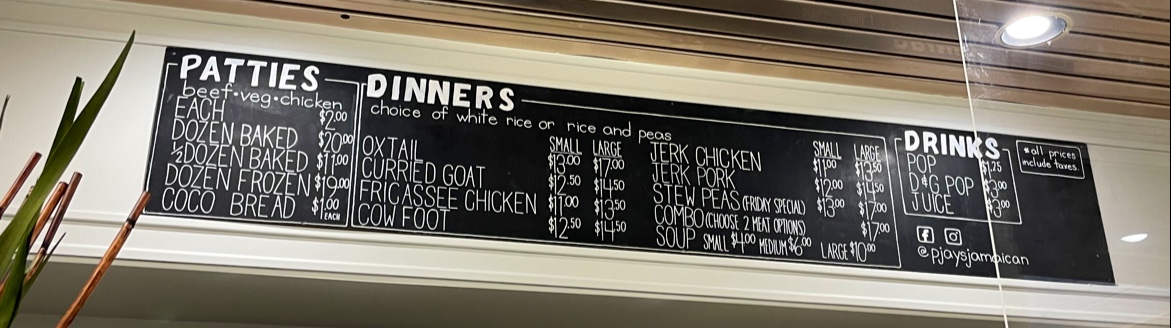 PATTIES
beef•veg•chicken
EACH $2.00
DOZEN BAKED $20.00
½ DOZEN BAKED $11.00
DOZEN FROZEN $19.00
COCO BREAD $1.00 EACH
DINNERS
choice of white rice or rice and peas
SMALL LARGE
OXTAIL $13.00 $17.00
CURRIED GOAT $12.50 $14.50
FRICASSEE CHICKEN $11.00 $13.50
COW FOOT $12.50 $14.50
SMALL LARGE
JERK CHICKEN $11.00 $13.50
JERK PORK $12.00 $14.50
STEW PEAS (FRIDAY SPECIAL) $13.00 $17.00
COMBO (CHOOSE 2 MEAT OPTIONS) $17.00
SOUP SMALL $4.00 MEDIUM $6.00 LARGE $10.00
DRINKS
POP $1.25
D&G POP $3.00
JUICE $3.00
*all prices
include taxes.
@pjaysjamaican